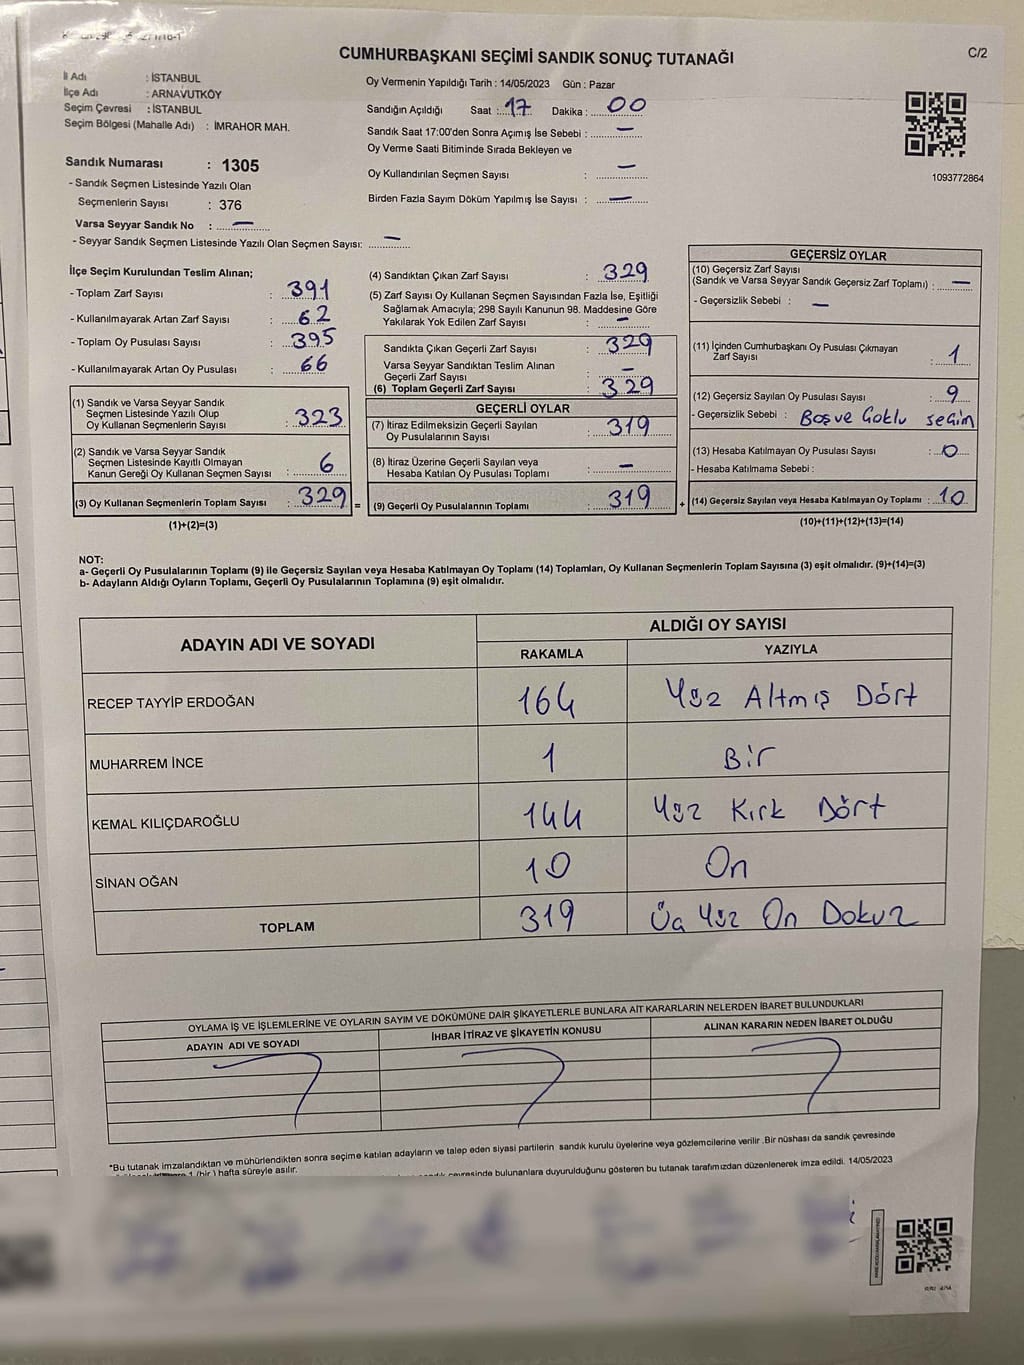 CUMHURBAŞKANI SEÇİMİ SANDIK SONUÇ TUTANAĞI
C/2
İl Adı : İSTANBUL
İlçe Adı : ARNAVUTKÖY
Seçim Çevresi : İSTANBUL
Seçim Bölgesi (Mahalle Adı) : İMRAHOR MAH.
Oy Vermenin Yapıldığı Tarih : 14/05/2023 Gün : Pazar
Sandığın Açıldığı Saat : 17 Dakika : 00
Sandık Saat 17:00'den Sonra Açımış İse Sebebi : —
Oy Verme Saati Bitiminde Sırada Bekleyen ve
Oy Kullandırılan Seçmen Sayısı : —
Birden Fazla Sayım Döküm Yapılmış İse Sayısı : —
1093772864
Sandık Numarası : 1305
- Sandık Seçmen Listesinde Yazılı Olan
Seçmenlerin Sayısı : 376
Varsa Seyyar Sandık No : —
- Seyyar Sandık Seçmen Listesinde Yazılı Olan Seçmen Sayısı: —
İlçe Seçim Kurulundan Teslim Alınan;
- Toplam Zarf Sayısı : 391
- Kullanılmayarak Artan Zarf Sayısı : 62
- Toplam Oy Pusulası Sayısı : 395
- Kullanılmayarak Artan Oy Pusulası : 66
(1) Sandık ve Varsa Seyyar Sandık
Seçmen Listesinde Yazılı Olup
Oy Kullanan Seçmenlerin Sayısı : 323
(2) Sandık ve Varsa Seyyar Sandık
Seçmen Listesinde Kayıtlı Olmayan
Kanun Gereği Oy Kullanan Seçmen Sayısı : 6
(3) Oy Kullanan Seçmenlerin Toplam Sayısı : 329
(1)+(2)=(3)
=
(4) Sandıktan Çıkan Zarf Sayısı : 329
(5) Zarf Sayısı Oy Kullanan Seçmen Sayısından Fazla İse, Eşitliği
Sağlamak Amacıyla; 298 Sayılı Kanunun 98. Maddesine Göre
Yakılarak Yok Edilen Zarf Sayısı : —
Sandıkta Çıkan Geçerli Zarf Sayısı : 329
Varsa Seyyar Sandıktan Teslim Alınan
Geçerli Zarf Sayısı : —
(6) Toplam Geçerli Zarf Sayısı : 329
GEÇERLİ OYLAR
(7) İtiraz Edilmeksizin Geçerli Sayılan
Oy Pusulalarının Sayısı : 319
(8) İtiraz Üzerine Geçerli Sayılan veya
Hesaba Katılan Oy Pusulası Toplamı : —
(9) Geçerli Oy Pusulalarının Toplamı : 319
+
GEÇERSİZ OYLAR
(10) Geçersiz Zarf Sayısı
(Sandık ve Varsa Seyyar Sandık Geçersiz Zarf Toplamı) : —
- Geçersizlik Sebebi : —
(11) İçinden Cumhurbaşkanı Oy Pusulası Çıkmayan
Zarf Sayısı : 1
(12) Geçersiz Sayılan Oy Pusulası Sayısı : 9
- Geçersizlik Sebebi : Boş ve Çoklu seçim
(13) Hesaba Katılmayan Oy Pusulası Sayısı : 0
- Hesaba Katılmama Sebebi :
(14) Geçersiz Sayılan veya Hesaba Katılmayan Oy Toplamı : 10
(10)+(11)+(12)+(13)=(14)
NOT:
a- Geçerli Oy Pusulalarının Toplamı (9) ile Geçersiz Sayılan veya Hesaba Katılmayan Oy Toplamı (14) Toplamları, Oy Kullanan Seçmenlerin Toplam Sayısına (3) eşit olmalıdır. (9)+(14)=(3)
b- Adayların Aldığı Oyların Toplamı, Geçerli Oy Pusulalarının Toplamına (9) eşit olmalıdır.
ADAYIN ADI VE SOYADI ALDIĞI OY SAYISI
RAKAMLA YAZIYLA
RECEP TAYYİP ERDOĞAN 164 Yüz Altmış Dört
MUHARREM İNCE 1 Bir
KEMAL KILIÇDAROĞLU 144 Yüz Kırk Dört
SİNAN OĞAN 10 On
TOPLAM 319 Üç Yüz On Dokuz
OYLAMA İŞ VE İŞLEMLERİNE VE OYLARIN SAYIM VE DÖKÜMÜNE DAİR ŞİKAYETLERLE BUNLARA AİT KARARLARIN NELERDEN İBARET BULUNDUKLARI
ADAYIN ADI VE SOYADI İHBAR İTİRAZ VE ŞİKAYETİN KONUSU ALINAN KARARIN NEDEN İBARET OLDUĞU
*Bu tutanak imzalandıktan ve mühürlendikten sonra seçime katılan adayların ve talep eden siyasi partilerin sandık kurulu üyelerine veya gözlemcilerine verilir .Bir nüshası da sandık çevresinde
1 (bir ) hafta süreyle asılır.
çevresinde bulunanlara duyurulduğunu gösteren bu tutanak tarafımızdan düzenlenerek imza edildi. 14/05/2023